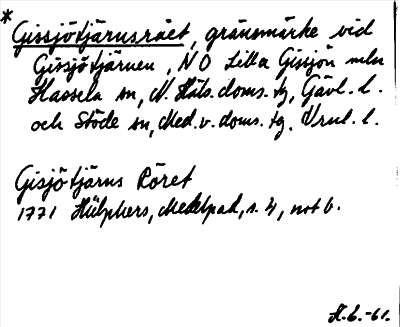 * Gissjötjärnsröet, gränsmärke vid
Gissjötjärnen, NO Lilla Gissjön mln
Hassela sn, N. Häls. doms. tg, Gävl. l.
och Stöde sn, Med. v. doms. tg. Vrnl. l.
Gisjötjärns Röret
1771 Hülphers, Medelpad, s. 4, not 6.
H.G.-61.